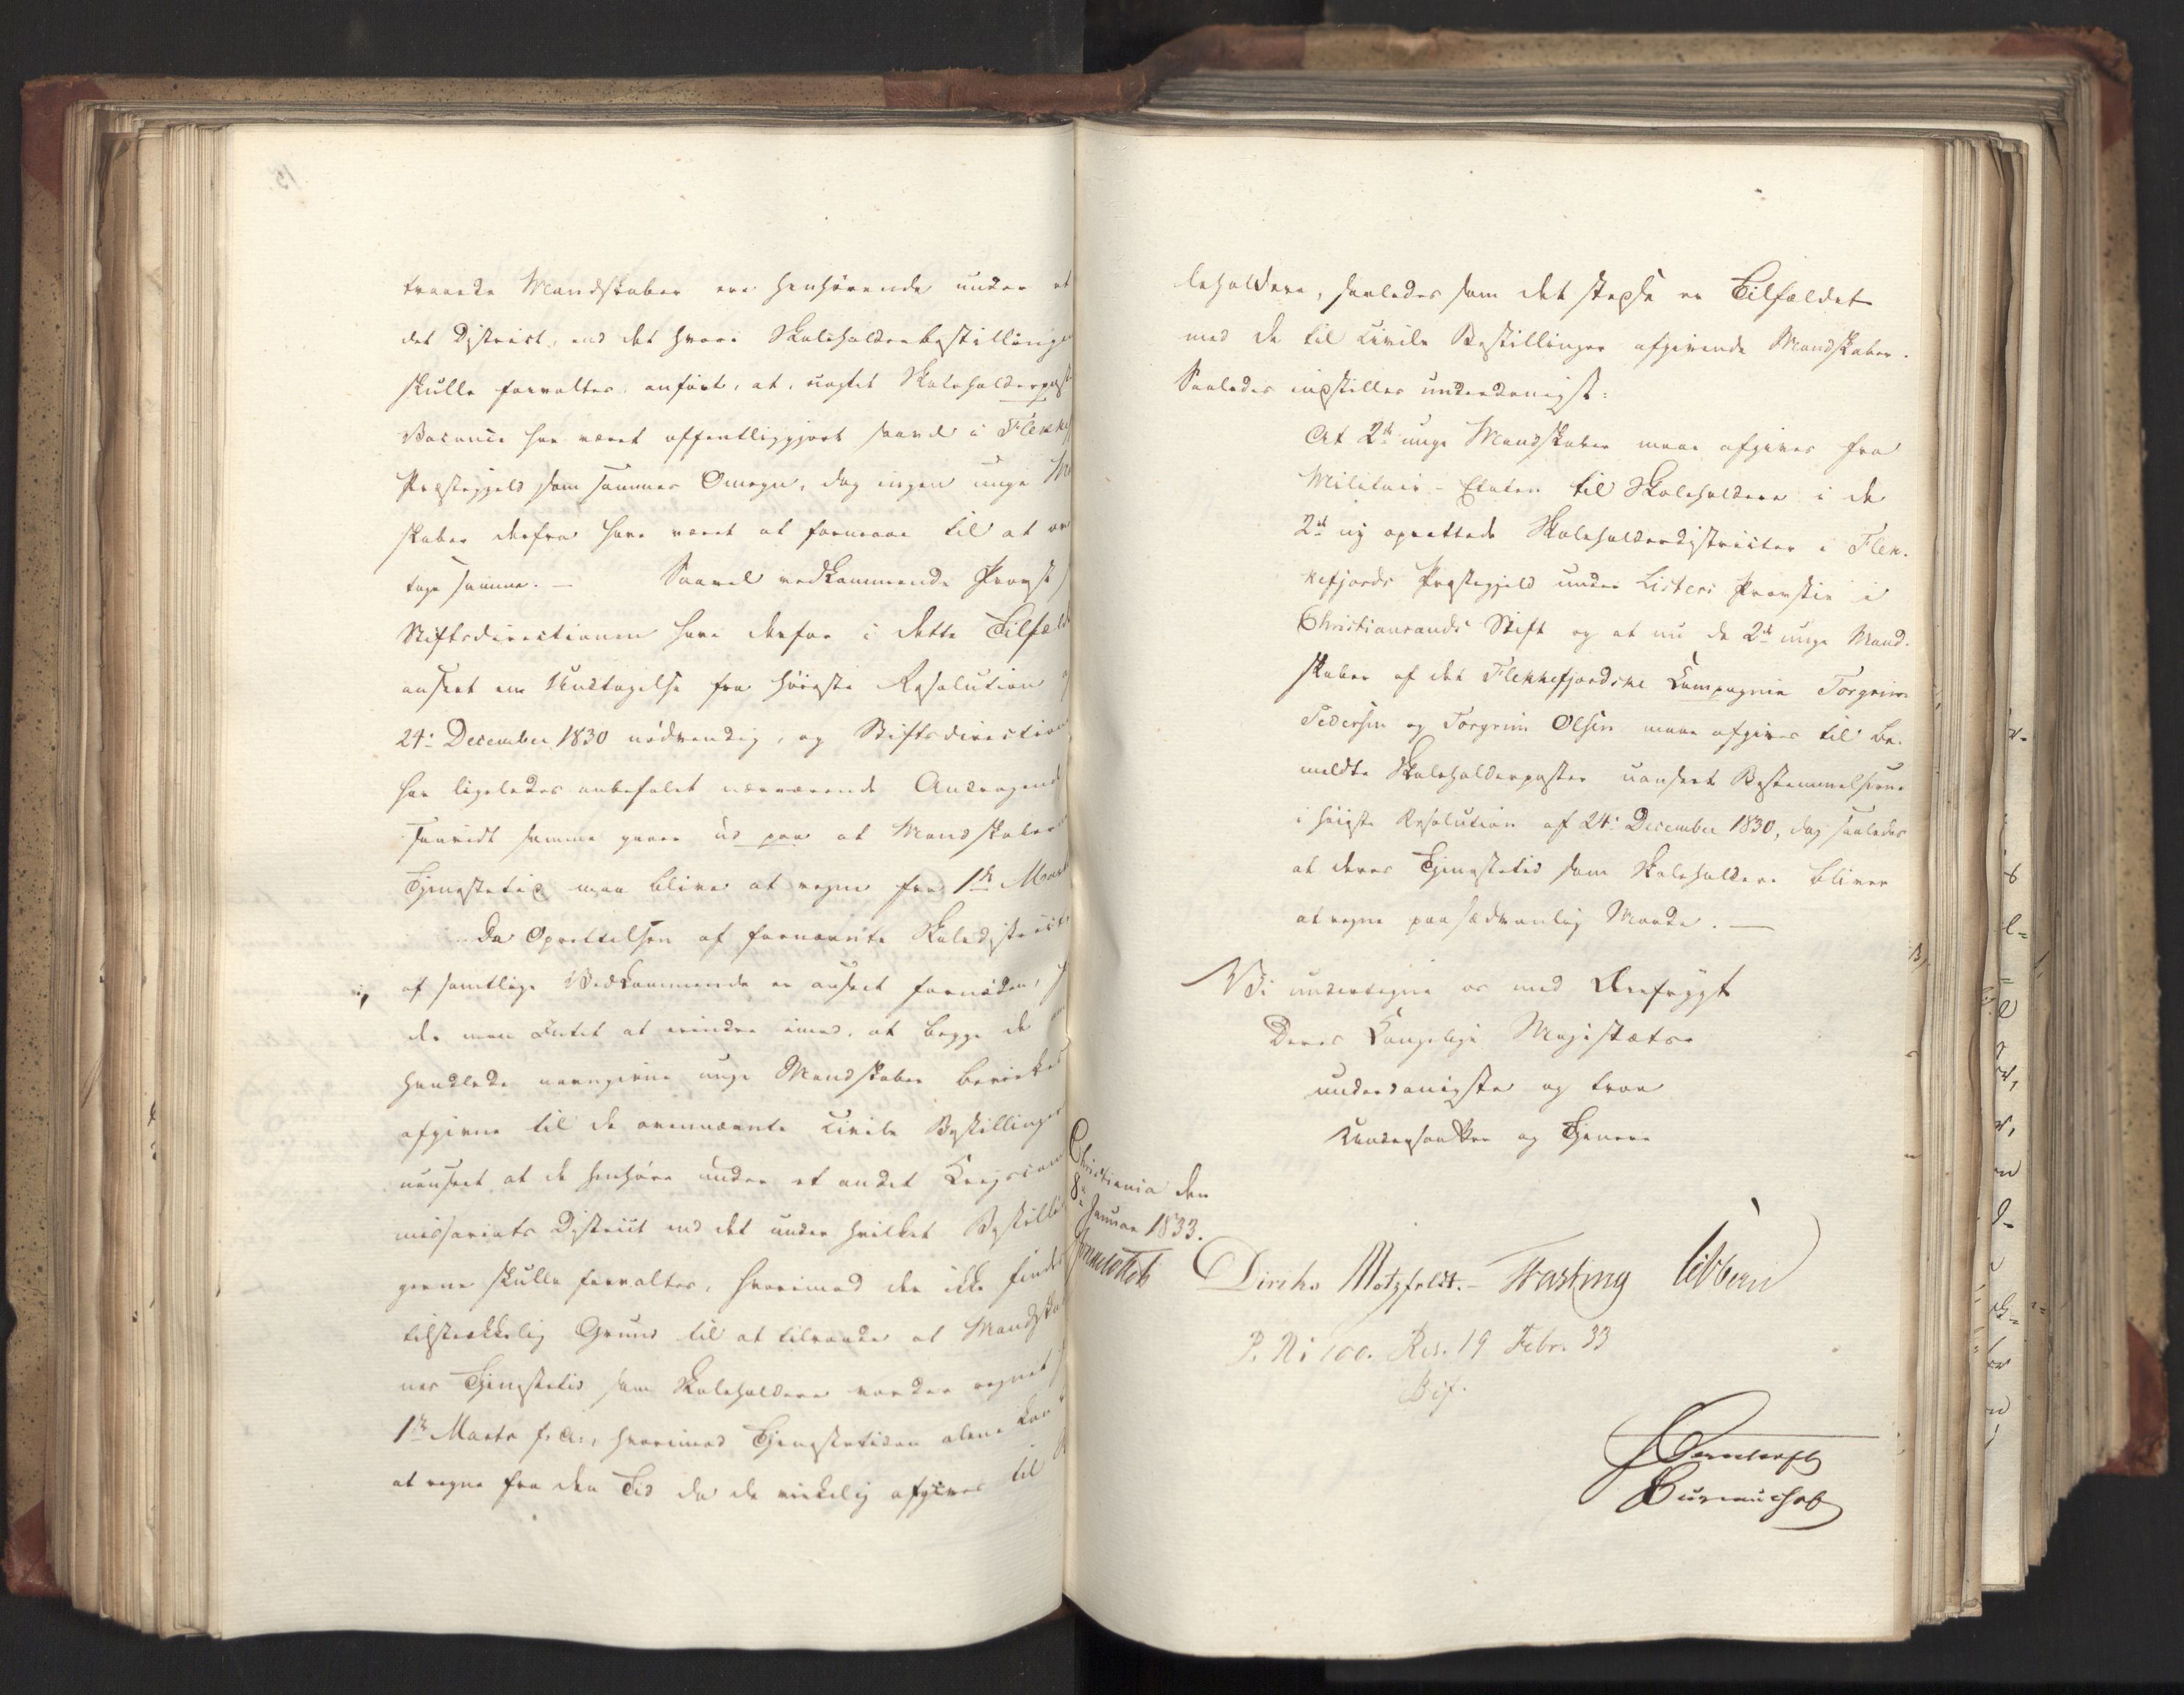 traadte Mandskaber ere henhørende under et
det District, end det hvori Skoleholderbestillinge
skulle forvaltes anført, at, uagtet Skoleholderpost
Vacance har været offentliggjort saavel i Flekkef
Præstegjeld som sammes Omegn, dog ingen unge M
skaber derfra have været at formaae til at
tage samme. — Saavel vedkommende Provst
Stiftsdirectionen have derfor i dette Tilfælde
anseet en Undtagelse fra høieste Resolution
24: December 1830 nødvendig, og Stiftsdirection
har ligeledes anbefalet nærværende Andragende
saavidt samme gaaer ud paa at Mandskaber
Tjenestetid maa blive at regne fra 1ste Marts
Da Oprettelsen af fornævnte Skoledistricte
af samtlige Vedkommende er anseet fornøden,
de man Intet at erindre imod, at begge de
handlede navngivne unge Mandskaber
afgivne til de ovennævnte Civile Bestillinger
uanseet at de henhøre under et andet Krigscom
missariats District end det under hvilket Bestillin
gerne skulle forvaltes, hvorimod der ikke findes
tilstrækkelig Grund til at tilraade at Mandska
nes Tjenestetid som Skoleholdere vorder regnet
1ste Marts f. A., hvorimod Tjenestetiden alene kan
at regne fra den Tid da de virkelig afgives til
leholdere, saaledes som det stedse er Tilfældet
med de til Civile Bestillinger afgivende Mandskaber.
Saaledes indstilles underdanigst:
At 2de unge Mandskaber maae afgives fra
Militair-Etaten til Skoleholdere i de
2de ny oprettede Skoleholderdistricter i Flek-
kefjords Præstegjeld under Listers Provstie i
Christiansands Stift og at nu de 2de unge Mand-
skaber af det Flekkefjordske Compagnie Torgrim
Pedersen og Torgrim Olsen maae afgives til be-
meldte Skoleholderposter uanseet Bestemmelserne
i høieste Resolution af 24: December 1830, dog saaledes
at deres Tjenestetid som Skoleholdere bliver
at regne paa sædvanlig Maade. —
Vi undertegne os med Ærefrygt
Deres Kongelige Majestæts
underdanigste og troe
Undersaatter og Tjenere
Christiania den
8de Januar 1833.
Diriks Motzfeldt.- Fasting Vibbern
P. N: 100. Res. 19 Febr. 33
Bif.
Bureauchef